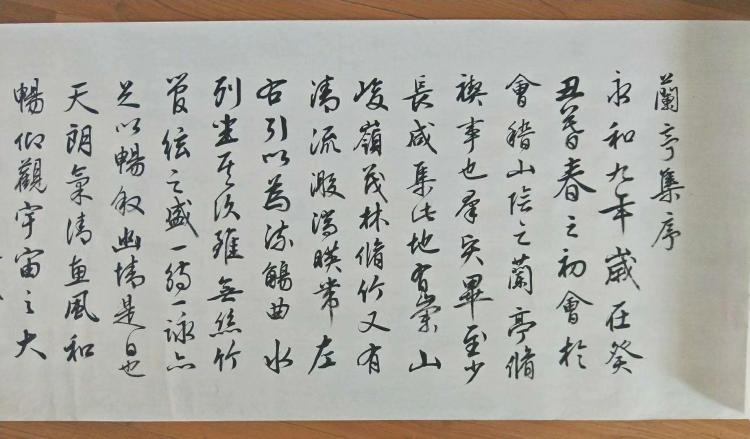 蘭亭集序
永和九年歲在癸
丑暮春之初會於
會稽山陰之蘭亭脩
禊事也羣賢畢至少
長咸集此地有崇山
峻嶺茂林脩竹又有
清流激湍暎帶左
右引以為流觴曲水
列坐其次雖無絲竹
管絃之盛一觴一詠亦
足以暢叙幽情是日也
天朗氣清惠風和
暢仰觀宇宙之大